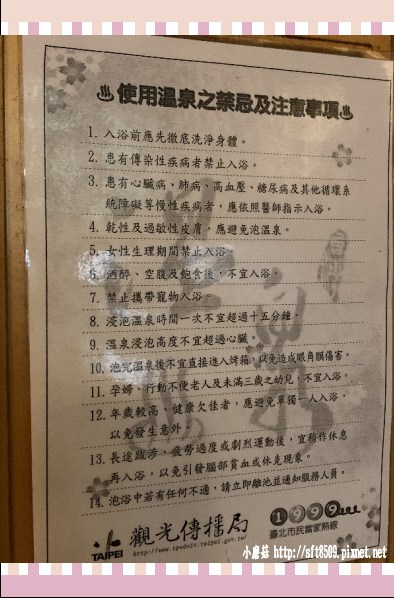 使用溫泉之禁忌及注意事項
1. 入浴前應先徹底洗淨身體。
2. 患有傳染性疾病者禁止入浴。
3. 患有心臟病、肺病、高血壓、糖尿病及其他循環系
統障礙等慢性疾病者，應依照醫師指示入浴。
4. 乾性及過敏性皮膚，應避免泡溫泉。
5. 女性生理期間禁止入浴。
6. 酒醉、空腹及飽食後，不宜入浴。
7. 禁止攜帶寵物入浴。
8. 浸泡溫泉時間一次不宜超過十五分鐘。
9. 溫泉浸泡高度不宜超過心臟。
10. 泡完溫泉後不宜直接進入烤箱，以免造成眼角膜傷害。
11. 孕婦、行動不便老人及未滿三歲之幼兒，不宜入浴。
12. 年歲較高、健康欠佳者，應避免單獨一人入浴，
以免發生意外。
13. 長途跋涉、疲勞過度或劇烈運動後，宜稍作休息
再入浴，以免引發腦部貧血或休克現象。
14. 泡浴中若有任何不適，請立即離池並通知服務人員。
TAIPEI
觀光傳播局
http://www.tpedoit.taipei.gov.tw/
1999
臺北市民當家熱線
小蘑菇 http://sft8509.pixnet.net